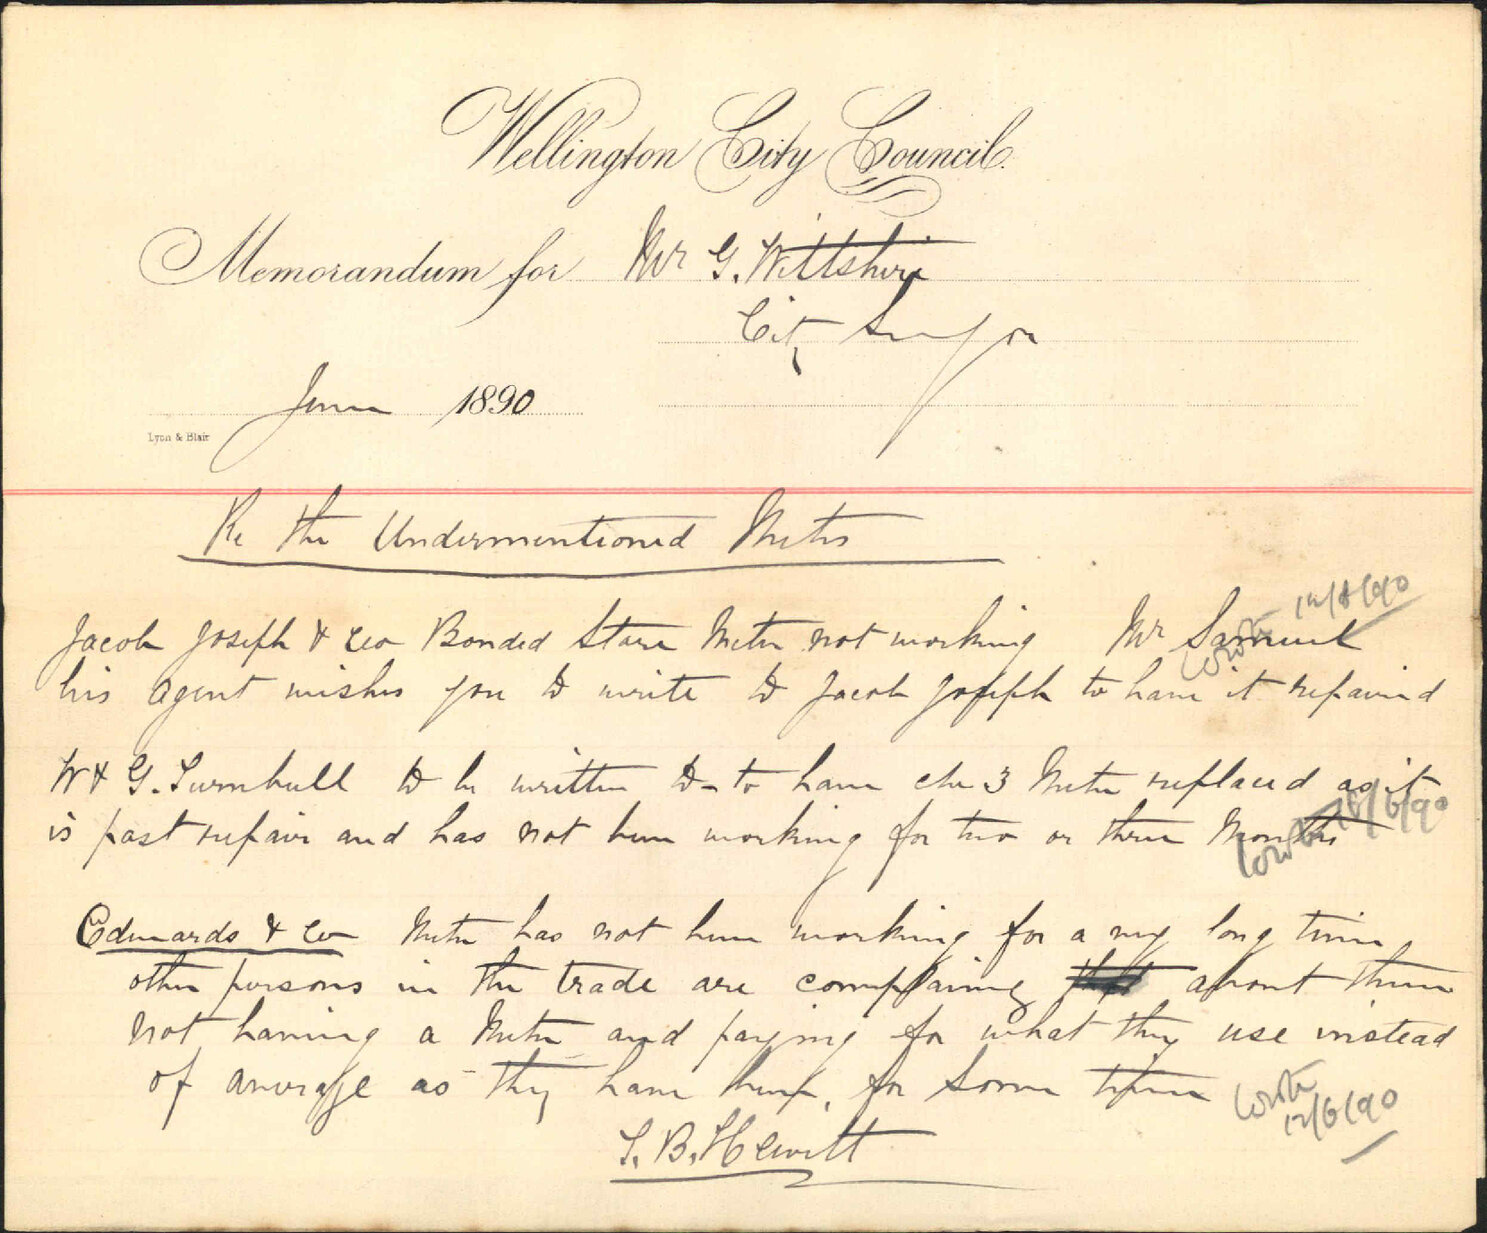 Wellington City Council.
Memorandum for Mr G. Wiltshire
City Surveyor
June 1890
Lyon & Blair
Re the Undermentioned Meters
Jacob Joseph & Co Bonded Store Meter not working Mr Samuel
his agent wishes you to write to Jacob Joseph to have it repaired
Wrote 12/6/90
W & G. Turnbull to be written to - to have the 3 Meter replaced as it
is past repair and has not been working for two or three Months
Wrote 16/6/90
Edwards & Co Meter has not been working for a very long time
other persons in the trade are complaining about them
not having a Meter and paying for what they use instead
of average as they have been, for some time
Wrote
12/6/90
T. B. Hewitt